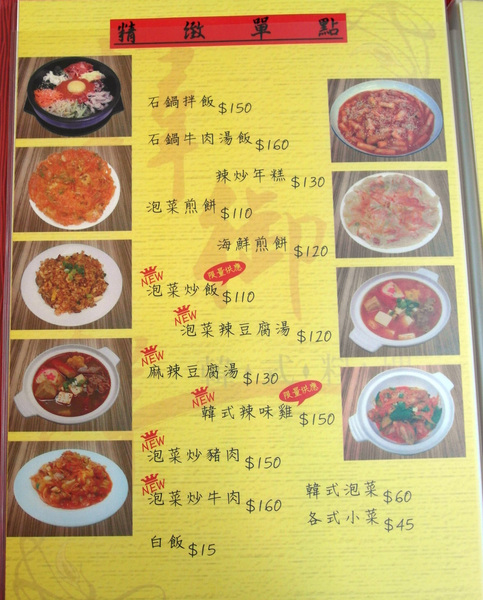 精緻單點
石鍋拌飯 $150
石鍋牛肉湯飯 $160
辣炒年糕 $130
泡菜煎餅 $110
海鮮煎餅 $120
NEW 泡菜炒飯 $110 限量供應
NEW 泡菜辣豆腐湯 $120
NEW 麻辣豆腐湯 $130
NEW 韓式辣味雞 $150 限量供應
NEW 泡菜炒豬肉 $150
NEW 泡菜炒牛肉 $160
韓式泡菜 $60
各式小菜 $45
白飯 $15